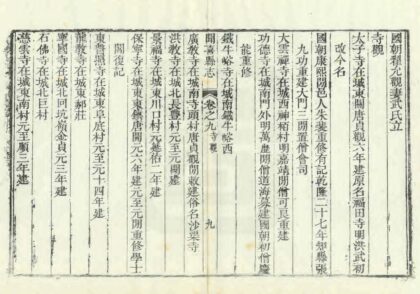 國朝翟允觀妻武氏立
寺觀
太子寺在城東關唐貞觀六年建原名福田寺明洪武初
改今名
國朝康熙間邑人朱裴重修有記乾隆二十七年知縣張
九功重建大門三間僧會司
大雲禪寺在城西神柏村明嘉靖間僧可良重建
功德寺在城南門外明萬歷間僧道海募建國朝初僧慶
能重修
鐵牛峪寺在城南鐵牛峪西
聞喜縣志 卷之九 寺觀 九
廣教寺在城南寺頭村唐貞觀間敕建俗名沙渠寺
洪教寺在城北長豐村元至元間建
景福寺在城東川口村元延佑二年建
保寧寺在城東東鎮唐開元六年建元至元間重修學士
閻復記
東普照寺在城東阜底村元至元十四年建
龍教寺在城東郝莊
寧國寺在城北回坑嶺金貞元三年建
石佛寺在城北巨村
慈雲寺在城東東南村元至順三年建